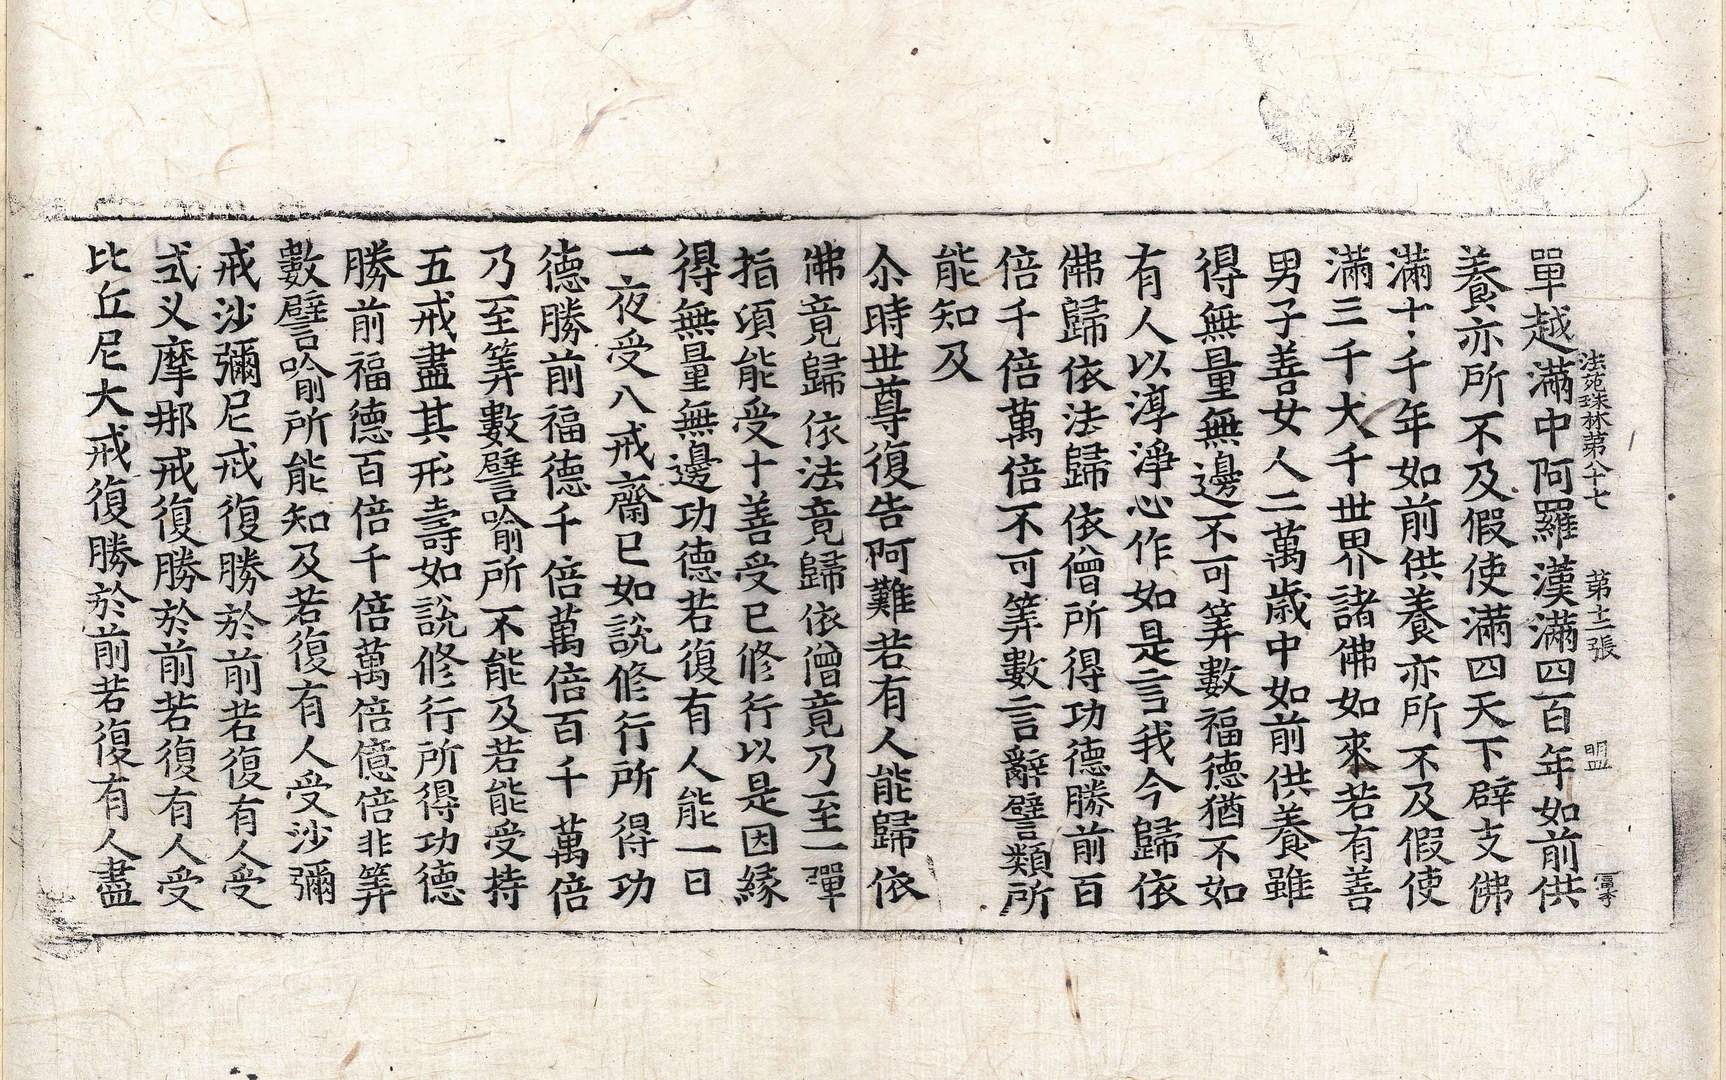 法苑珠林第八十七 第十二張 盟
單越滿中阿羅漢滿四百年如前供
養亦所不及假使滿四天下辟支佛
滿十千年如前供養亦所不及假使
滿三千大千世界諸佛如來若有善
男子善女人二萬歲中如前供養雖
得無量無邊不可筭數福德猶不如
有人以淳淨心作如是言我今歸依
佛歸依法歸依僧所得功德勝前百
倍千倍萬倍不可筭數言辭譬類所
能知及
尒時世尊復告阿難若有人能歸依
佛竟歸依法竟歸依僧竟乃至一彈
指頃能受十善受已修行以是因緣
得無量無邊功德若復有人能一日
一夜受八戒齋已如說修行所得功
德勝前福德千倍萬倍百千萬倍
乃至筭數譬喻所不能及若能受持
五戒盡其形壽如說修行所得功德
勝前福德百倍千倍萬倍億倍非筭
數譬喻所能知及若復有人受沙彌
戒沙彌尼戒復勝於前若復有人受
式叉摩那戒復勝於前若復有人受
比丘尼大戒復勝於前若復有人盡